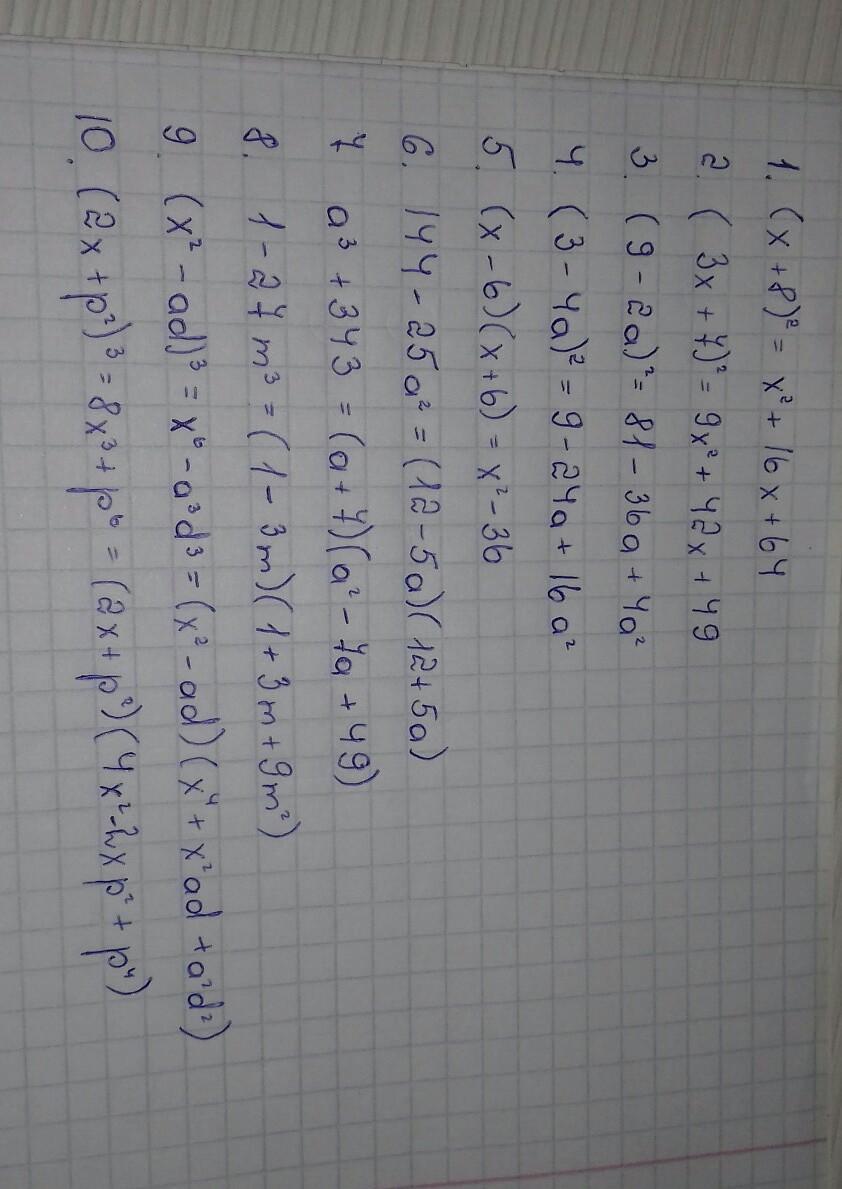 1. (x+8)² = x² + 16x + 64
2. (3x + 7)² = 9x² + 42x + 49
3. (9 - 2a)² = 81 - 36a + 4a²
4. (3 - 4a)² = 9 - 24a + 16a²
5. (x - 6)(x + 6) = x² - 36
6. 144 - 25a² = (12 - 5a)(12 + 5a)
7 a³ + 343 = (a + 7)(a² - 7a + 49)
8. 1 - 27m³ = (1 - 3m)(1 + 3m + 9m²)
9. (x² - ad)³ = x⁶ - a³d³ = (x² - ad)(x⁴ + x²ad + a²d²)
10. (2x + p²)³ = 8x³ + p⁶ = (2x + p²)(4x² - 2xp² + p⁴)